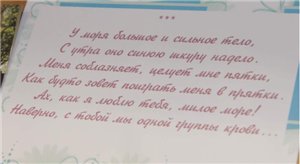 ***
У моря большое и сильное тело,
С утра оно синюю шкуру надело.
Меня соблазняет, целует мне пятки,
Как будто зовет поиграть меня в прятки.
Ах, как я люблю тебя, милое море!
Наверно, с тобой мы одной группы крови...